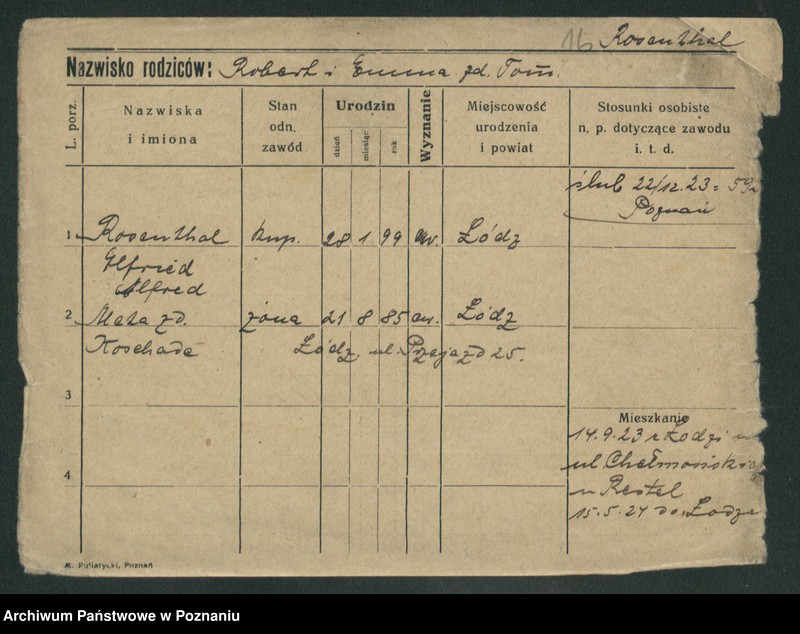 16 Rosenthal
Nazwisko rodziców: Robert i Emma zd. Tom.
L. porz.
Nazwiska
i imiona
Stan
odn.
zawód
Urodzin
dzień
miesiąc
rok
Wyznanie
Miejscowość
urodzenia
i powiat
Stosunki osobiste
n. p. dotyczące zawodu
i. t. d.
ślub 22/12.23 =
Poznań
1 Rosenthal kup. 28 1 99 ew. Łódź
Elfried
Alfred
2 Meta zd. żona 21 8 85 ew. Łódź
Koschade Łódź, ul. Przejazd 25.
3
Mieszkanie
14.9.23 z Łodzi
4
ul.
u Restel
15.5.24 do Łodzi
M. Putiatycki, Poznań
Archiwum Państwowe w Poznaniu